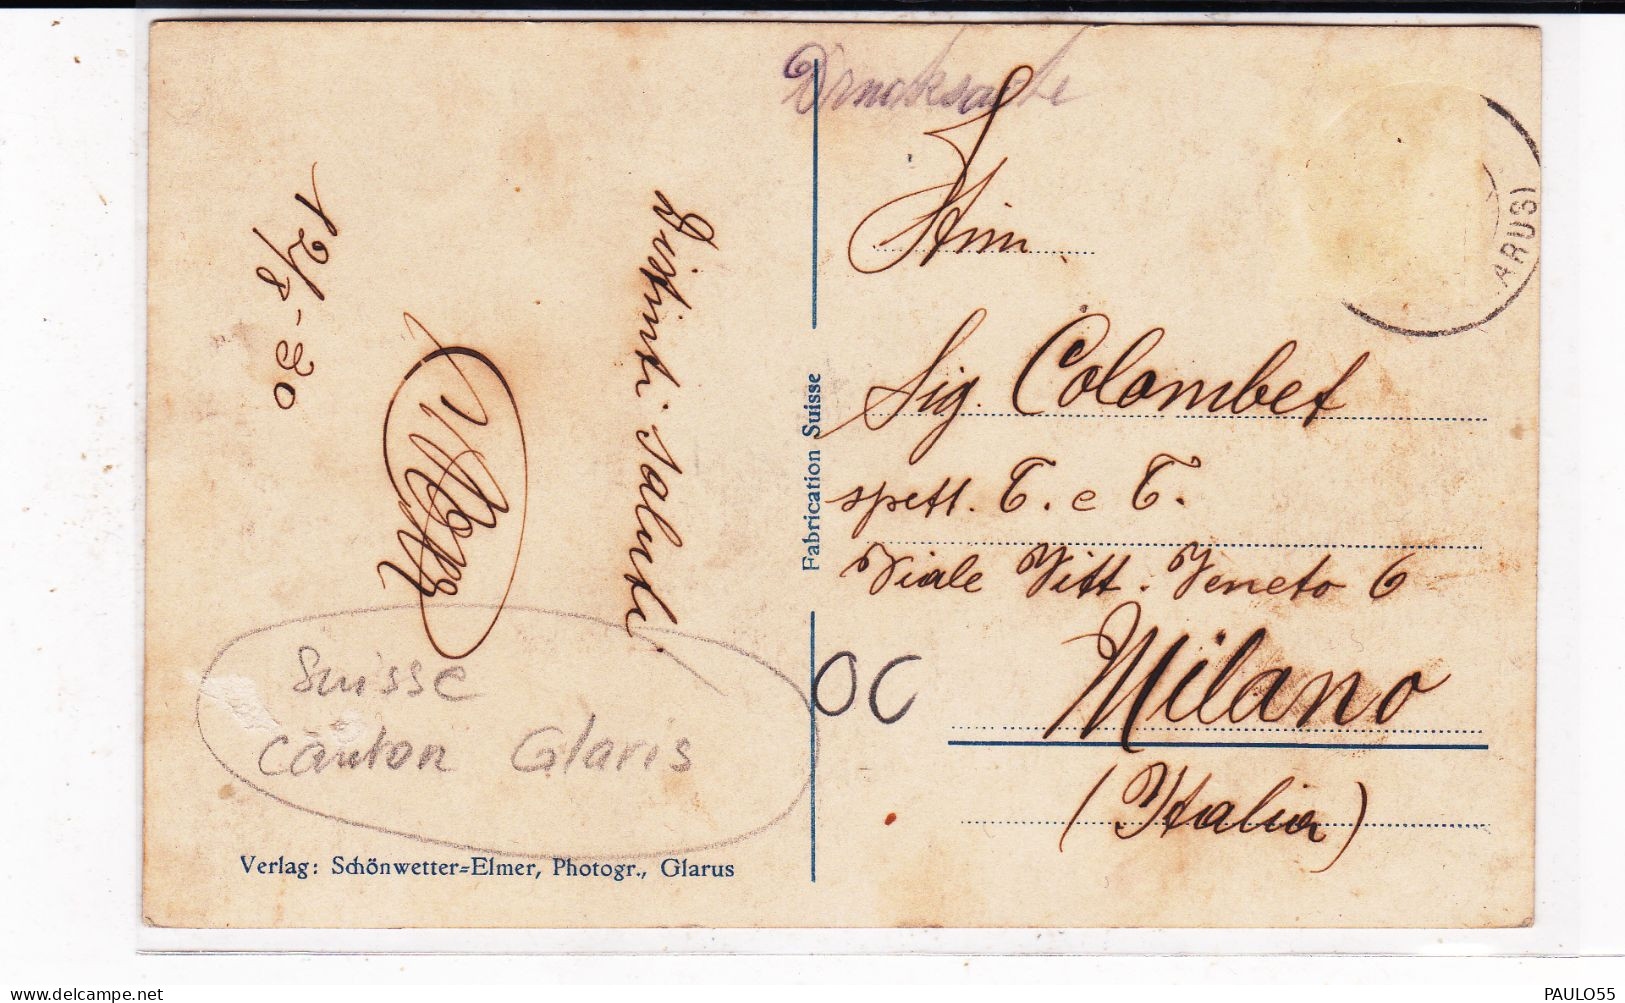 Drucksache
Stim
Sig. Colombet
spett. T. e T.
Viale Vitt. Veneto 6
Milano
(Italia)
ARUS)
12/8-30
Distinti saluti
Fabrication Suisse
OC
Suisse
canton Glaris
Verlag: Schönwetter=Elmer, Photogr., Glarus
delcampe.net
PAULO55